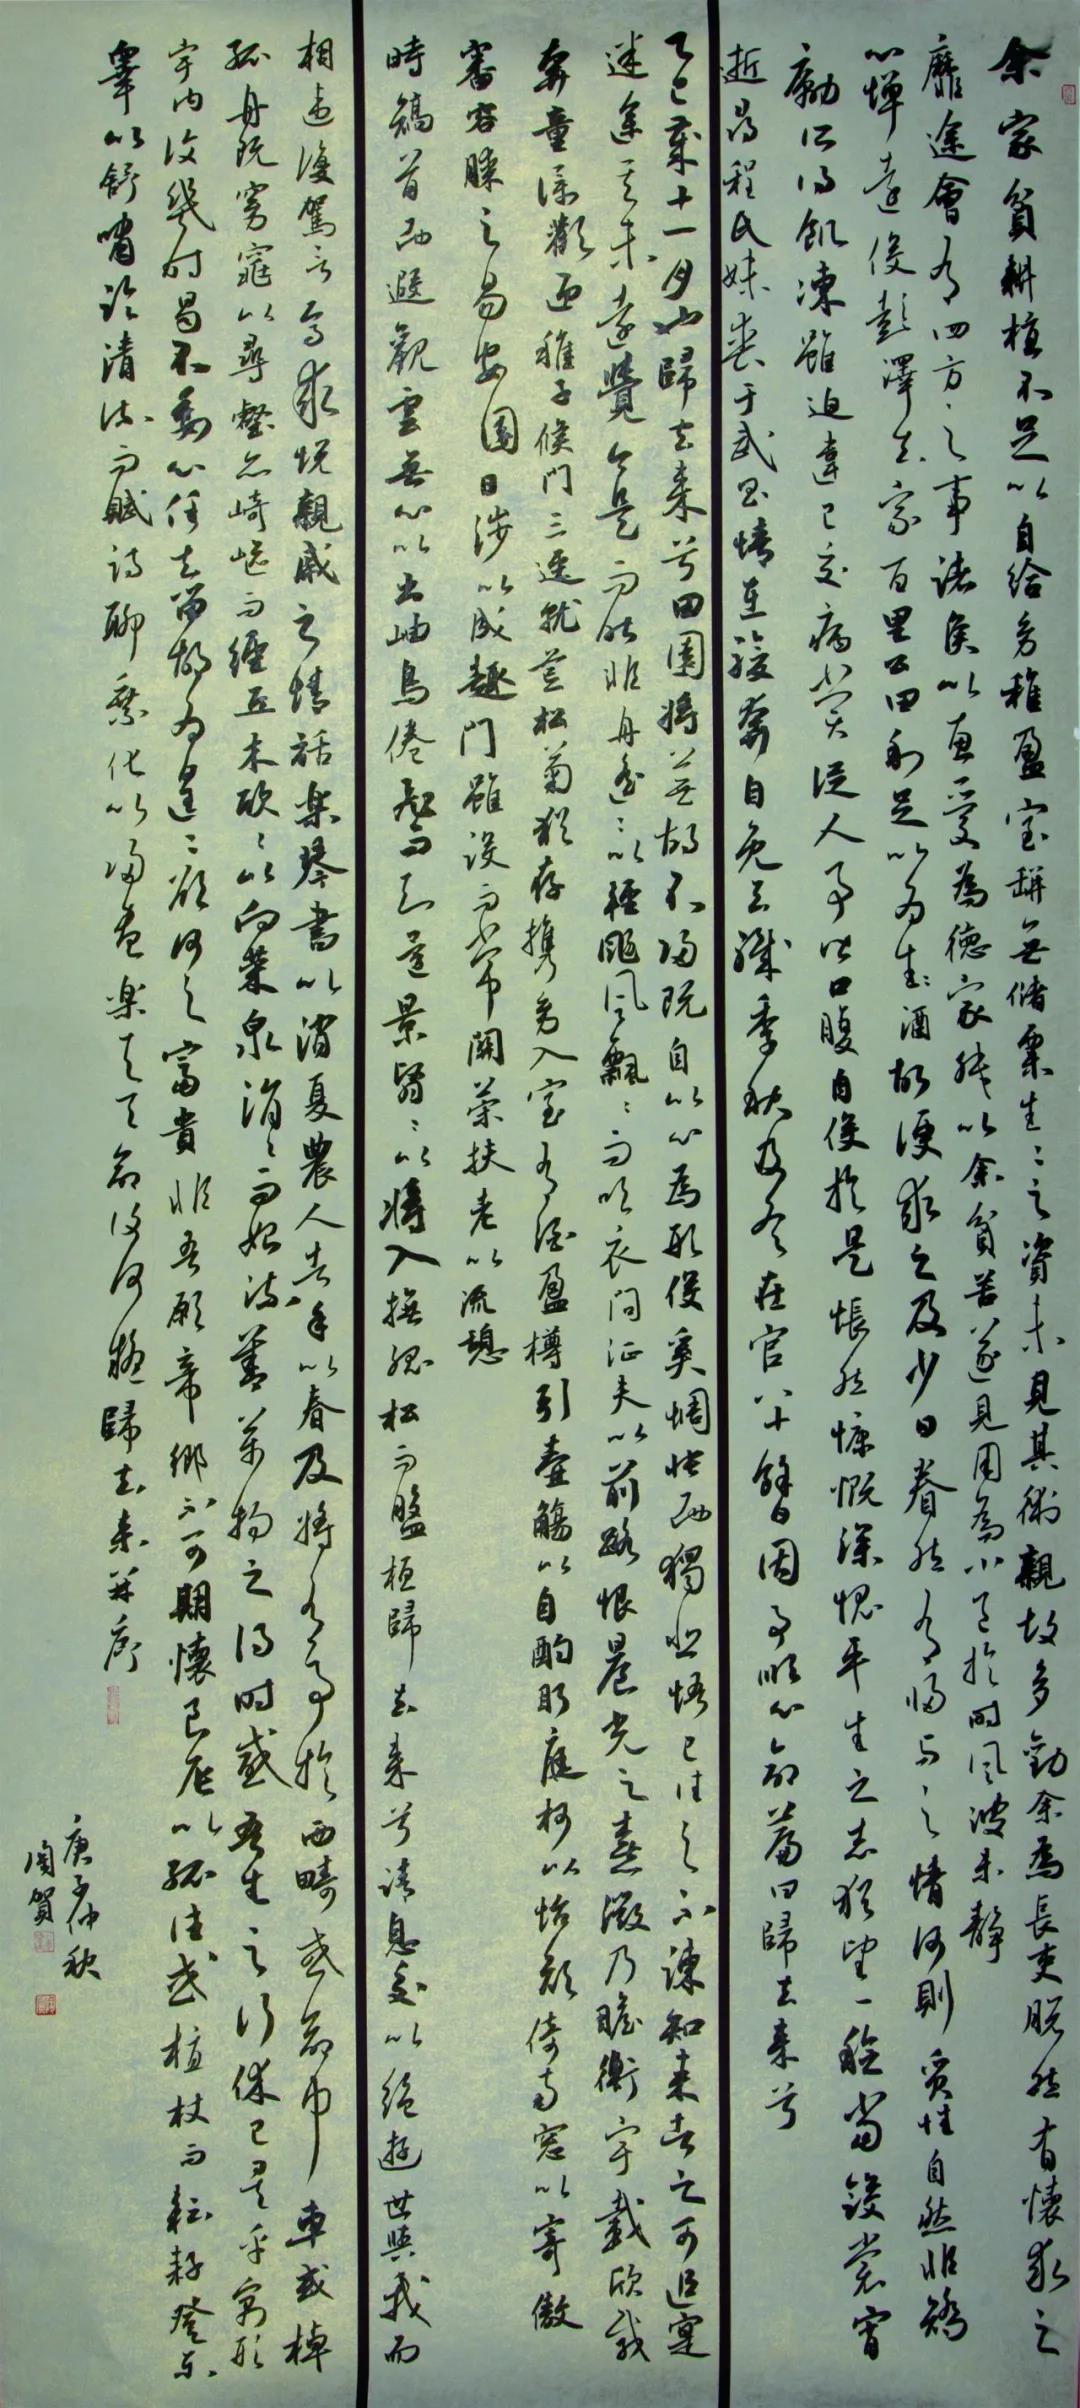 余家貧耕植不足以自給幼稚盈室缾無儲粟生〻之資未見其術親故多勸余為長吏脫然有懷求之
靡途會有四方之事諸侯以惠愛為德家叔以余貧苦遂見用為小邑於時風波未靜
心憚遠役彭澤去家百里公田利足以為生〻酒故便求之及少日眷然有歸與之情何則質性自然非矯
勵所得飢凍雖迫違己交病嘗從人事皆口腹自役於是悵然慷慨深愧平生之志猶望一稔當斂裳宵
逝尋程氏妹喪于武昌情在駿奔自免去職季秋及冬在官八十餘日因事順心命篇曰歸去來兮
乙巳歲十一月也歸去來兮田園將蕪胡不歸既自以心為形役奚惆悵而獨悲悟已往之不諫知來者之可追寔
迷途其未遠覺今是而昨非舟遙〻以輕颺風飄〻而吹衣問征夫以前路恨晨光之熹微乃瞻衡宇載欣載
奔童僕歡迎稚子候門三逕就荒松菊猶存攜幼入室有酒盈樽引壺觴以自酌眄庭柯以怡顏倚南窓以寄傲
審容膝之易安園日涉以成趣門雖設而常關策扶老以流憩
時矯首而遐觀雲無心以出岫鳥倦飛而知還景翳〻以將入撫孤松而盤桓歸去來兮請息交以絕遊世與我而
相違復駕言兮求悅親戚之情話樂琴書以消憂農人告余以春及將有事於西疇或命巾車或棹
孤舟既窈窕以尋壑亦崎嶇而經丘木欣〻以向榮泉涓〻而始流善萬物之得時感吾生之行休已矣乎寓形
宇內復幾時曷不委心任去留胡為遑〻欲何之富貴非吾願帝鄉不可期懷良辰以孤往或植杖而耘耔登東
皋以舒嘯臨清流而賦詩聊乘化以歸盡樂夫天命復何疑歸去來并序
庚子仲秋
賀